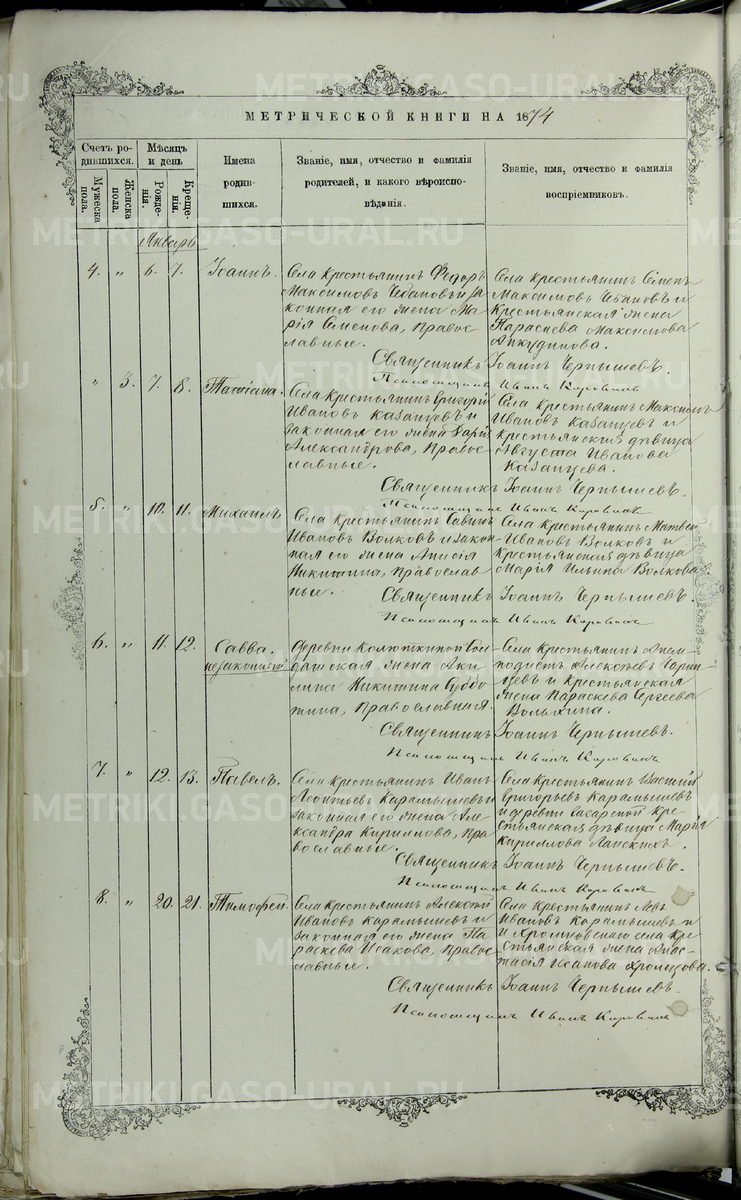 МЕТРИЧЕСКОЙ КНИГИ НА 1874
Счетъ родившихся.
Мужеска пола.
Женска пола.
Мѣсяцъ и день
Рожденія.
Крещенія.
Имена родившихся.
Званіе, имя, отчество и фамилія родителей, и какого вѣроисповѣданія.
Званіе, имя, отчество и фамилія воспріемниковъ.
Январь
4. „ 6. 7. Іоаннъ.
Села крестьянинъ Федоръ
Максимовъ Чебановъ и за
конная его жена Ма
рія Семенова, Правос
лавные.
Села крестьянин Семен
Максимовъ Чебановъ и
Крестьянская жена
Параскева Максимова
Анкудинова.
Священникъ Іоаннъ Чернышевъ.
Псаломщикъ Иванъ Коровинъ
„ 3. 7. 8. Татіана.
Села крестьянинъ Григорій
Ивановъ Казанцевъ и
законная его жена Дарія
Александрова, Правос
лавные.
Села крестьянинъ Максимъ
Ивановъ Казанцевъ и
крестьянская дѣвица
Августа Иванова
Казанцева.
Священникъ Іоаннъ Чернышевъ.
Псаломщикъ Иванъ Коровинъ
5. „ 10. 11. Михаилъ
Села крестьянинъ Савинъ
Ивановъ Волковъ и закон
ная его жена Анисія
Никитина, Православ
ные.
Села крестьянинъ Матвей
Ивановъ Волковъ и
Крестьянская дѣвица
Марія Ильина Волкова
Священникъ Іоаннъ Чернышевъ.
Псаломщикъ Иванъ Коровинъ
6. „ 11. 12. Савва.
незаконный
Деревни Колюткиной Сол
датская жена Аки
лина Никитина Суббо
тина, Православная.
Села Крестьянинъ
Алексѣевъ
и Крестьянская
жена Параскева Сергеева
Волыхина.
Священникъ Іоаннъ Чернышевъ.
Псаломщикъ Иванъ Коровинъ
7. „ 12. 13. Павелъ.
Села крестьянинъ Иванъ
Леонтьевъ Карамышевъ и
законная его жена Але
ксандра Кирилова, Пра
вославные.
Села крестьянинъ Василій
Григорьевъ Карамышевъ
и деревни кре
стьянская дѣвица Марія
Кирилова Ланскихъ.
Священникъ Іоаннъ Чернышевъ.
Псаломщикъ Иванъ Коровинъ
8. „ 20. 21. Тимофей.
Села крестьянинъ Алексѣй
Ивановъ Карамышевъ и
законная его жена Па
раскева Исакова, Правос
лавные.
Села Крестьянинъ Левъ
Ивановъ Карамышевъ и
и села Кре
стьянская жена Анас
тасія Исакова Хромцова.
Священникъ Іоаннъ Чернышевъ.
Псаломщикъ Иванъ Коровинъ
METRIKI.GASO-URAL.RU